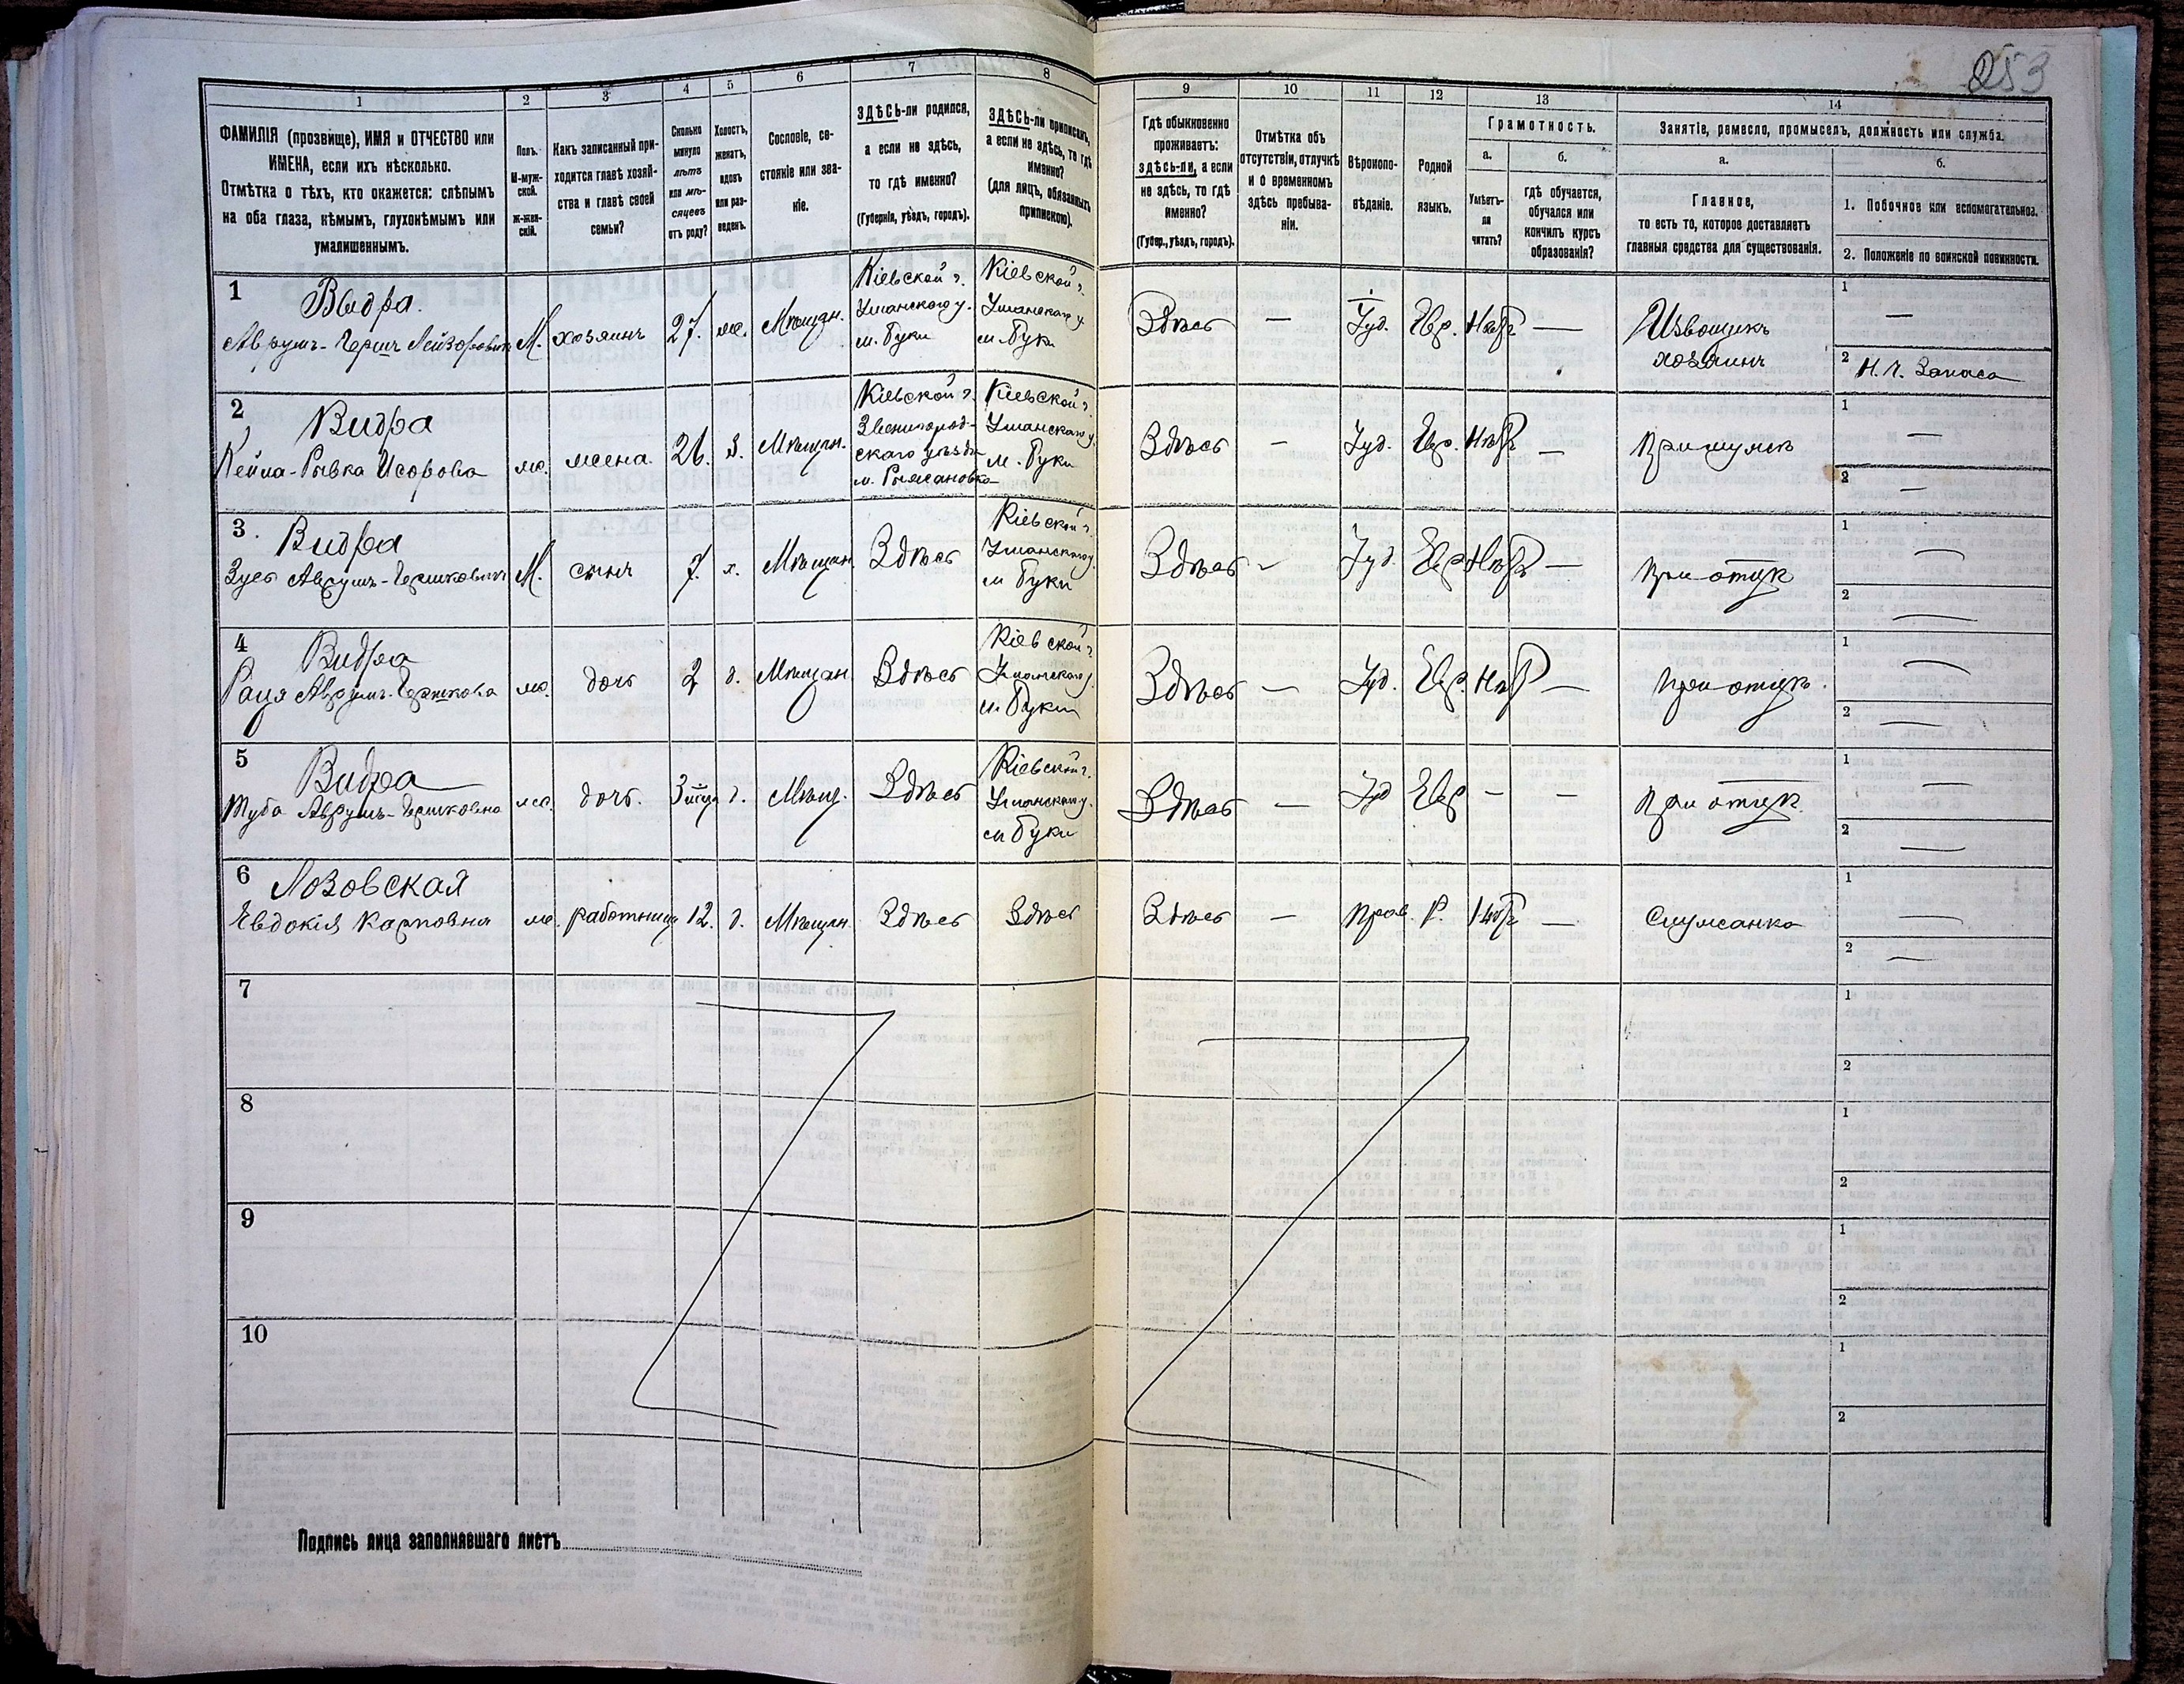 253
1
2
3
4
5
6
7
8
9
10
11
12
13
14
ФАМИЛІЯ (прозвище), ИМЯ и ОТЧЕСТВО или
ИМЕНА, если ихъ нѣсколько.
Отмѣтка о тѣхъ, кто окажется: слѣпымъ
на оба глаза, нѣмымъ, глухонѣмымъ или
умалишеннымъ.
Полъ.
М-муж-
ской.
Ж-жен-
скій.
Какъ записанный при-
ходится главѣ хозяй-
ства и главѣ своей
семьи?
Сколько
минуло
лѣтъ
или мѣ-
сяцевъ
отъ роду?
Холостъ,
женатъ,
вдовъ
или раз-
веденъ.
Сословіе, со-
стояніе или зва-
ніе.
ЗДѢСЬ-ли родился,
а если не здѣсь,
то гдѣ именно?
(Губернія, уѣздъ, городъ).
ЗДѢСЬ-ли приписанъ,
а если не здѣсь, то гдѣ
именно?
(для лицъ, обязанныхъ
припискою).
Гдѣ обыкновенно
проживаетъ:
здѣсь-ли, а если
не здѣсь, то гдѣ
именно?
(Губер., уѣздъ, городъ).
Отмѣтка объ
отсутствіи, отлучкѣ
и о временномъ
здѣсь пребыва-
ніи.
Вѣроиспо-
вѣданіе.
Родной
языкъ.
Грамотность.
а.
Умѣетъ-
ли
читать?
б.
гдѣ обучается,
обучался или
кончилъ курсъ
образованія?
Занятіе, ремесло, промыселъ, должность или служба.
а.
Главное,
то есть то, которое доставляетъ
главныя средства для существованія.
б.
1. Побочное или вспомогательное.
2. Положеніе по воинской повинности.
1
Выдра.
Аврумъ-Гершъ Лейзоровичъ М. хозяинъ 27. ж. Мѣщан.
Кіевской г.
Уманского у.
м. Буки
Кіевской г.
Уманского у.
м. Буки
Здѣсь — Іуд. Евр. —
Извощикъ
хозяинъ
1 —
2 Н. Ч. Запаса
2
Видра
Рывка ж. жена. 26. З. Мѣщан.
Кіевской г.
Звенигород-
скаго уѣзда
м. Рыжановка
Кіевской г.
Уманского у.
м. Буки
Здѣсь — Іуд. Евр. —
При мужѣ
1 —
2 —
3.
Видра
Аврумъ-Гершковичъ М. сынъ 7. х. Мѣщан. Здѣсь
Кіевской г.
Уманского у.
м Буки
Здѣсь — Іуд. Евр. —
При отцѣ
1 —
2 —
4
Видра
Аврумъ-Гершкова ж. дочь 2 д. Мѣщан. Здѣсь
Кіевской г.
Уманского у.
м Буки
Здѣсь — Іуд. Евр. —
При отцѣ.
1 —
2 —
5
Видра
Туба Аврумъ-Гершковна ж. дочь. д. Мѣщ. Здѣсь
Кіевской г.
Уманского у.
м Буки
Здѣсь — Іуд Евр — —
При отцѣ.
1 —
2 —
6
Лозовская
Евдокія Карповна ж. работница 12. д. Мѣщан. Здѣсь Здѣсь
Здѣсь — Прав. Р. —
Служанка
1 —
2 —
7
1
2
8
1
2
9
1
2
10
1
2
Подпись лица заполнявшаго листъ